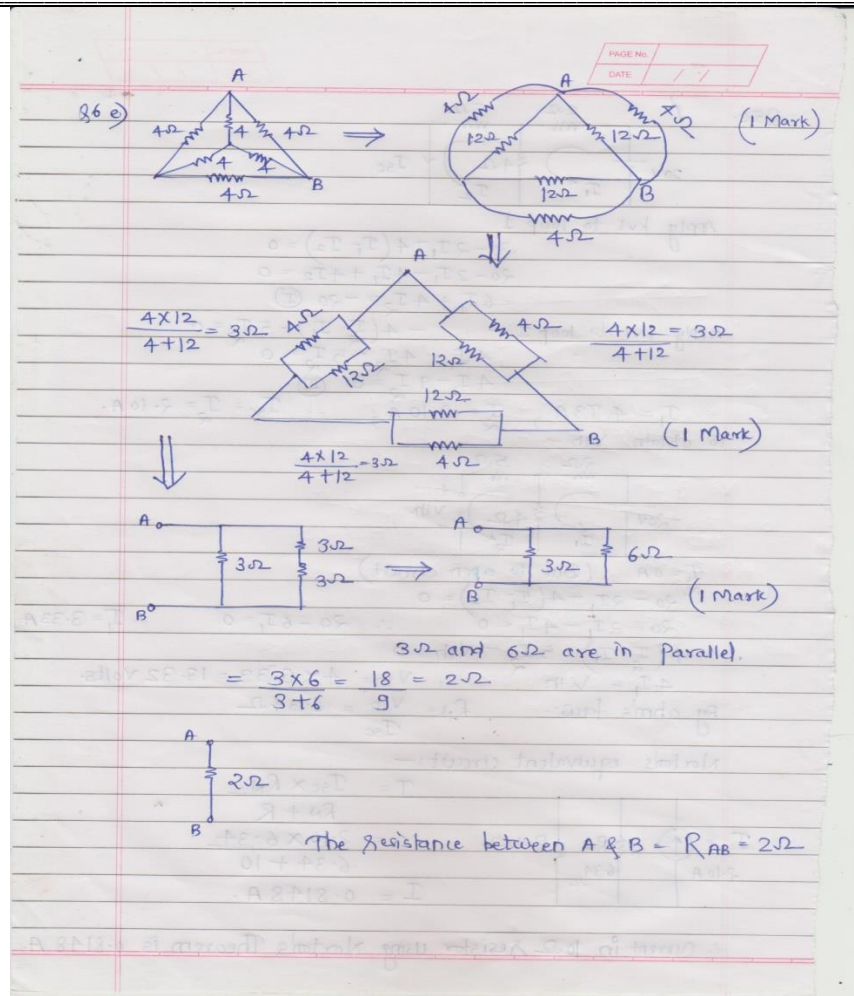 PAGE No.
DATE / /
Q6 e)
A
4Ω 4 4Ω
4 4
4Ω B
⇒
A
4Ω 4Ω
12Ω 12Ω
12Ω B
4Ω
(1 Mark)
⇓
A
4×12/4+12 = 3Ω
4Ω 12Ω
4Ω 12Ω
4×12/4+12 = 3Ω
12Ω
4Ω
B
4×12/4+12 = 3Ω
(1 Mark)
⇓
A 3Ω 3Ω 3Ω B
⇒
A 3Ω 6Ω B
(1 Mark)
3Ω and 6Ω are in Parallel.
= 3×6/3+6 = 18/9 = 2Ω
A
2Ω
B
The resistance between A & B = R AB = 2Ω